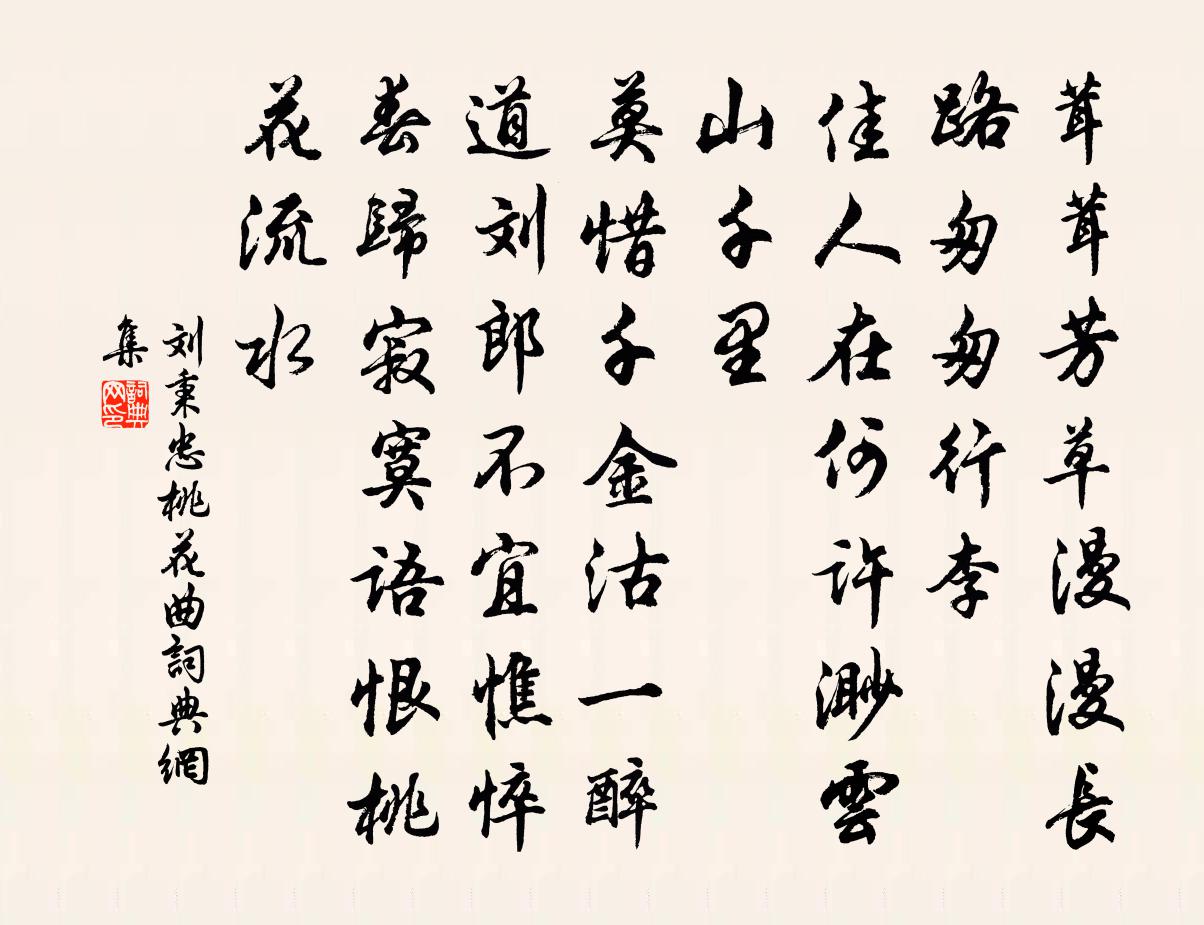 茸茸芳草漫漫長
路匆匆行李
佳人在何許渺雲
山千里
莫惜千金沽一醉
道刘郎不宜憔悴
春歸寂寞語恨桃
花流水
刘秉忠桃花曲詞典網
集
詞典
网印